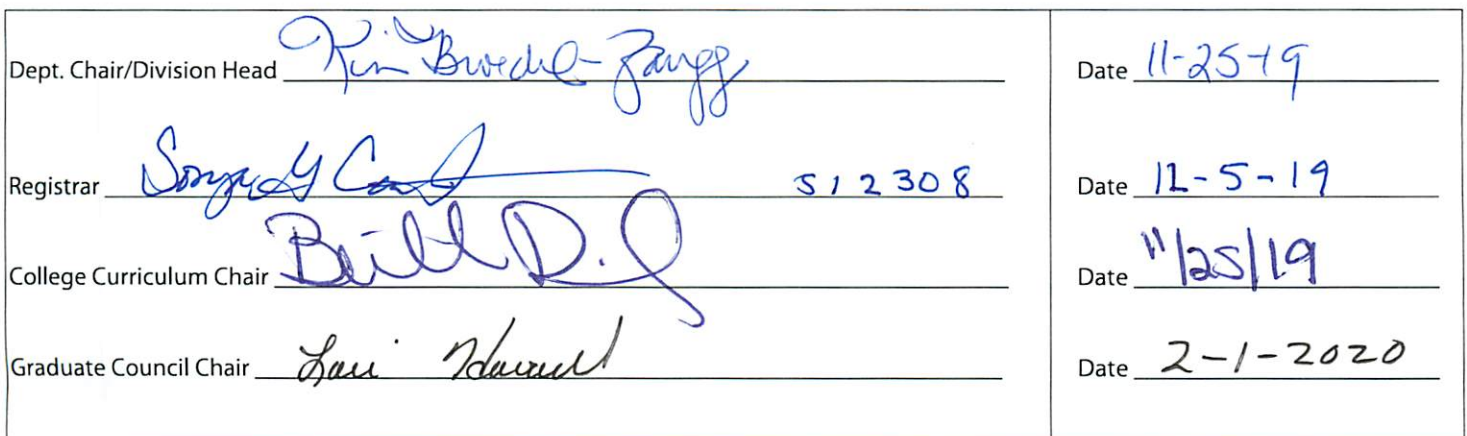 Dept. Chair/Division Head Kim Broedel-Zaugg Date 11-25-19
Registrar Sonja G 512308 Date 12-5-19
College Curriculum Chair D. Date 11/25/19
Graduate Council Chair Lori Howard Date 2-1-2020